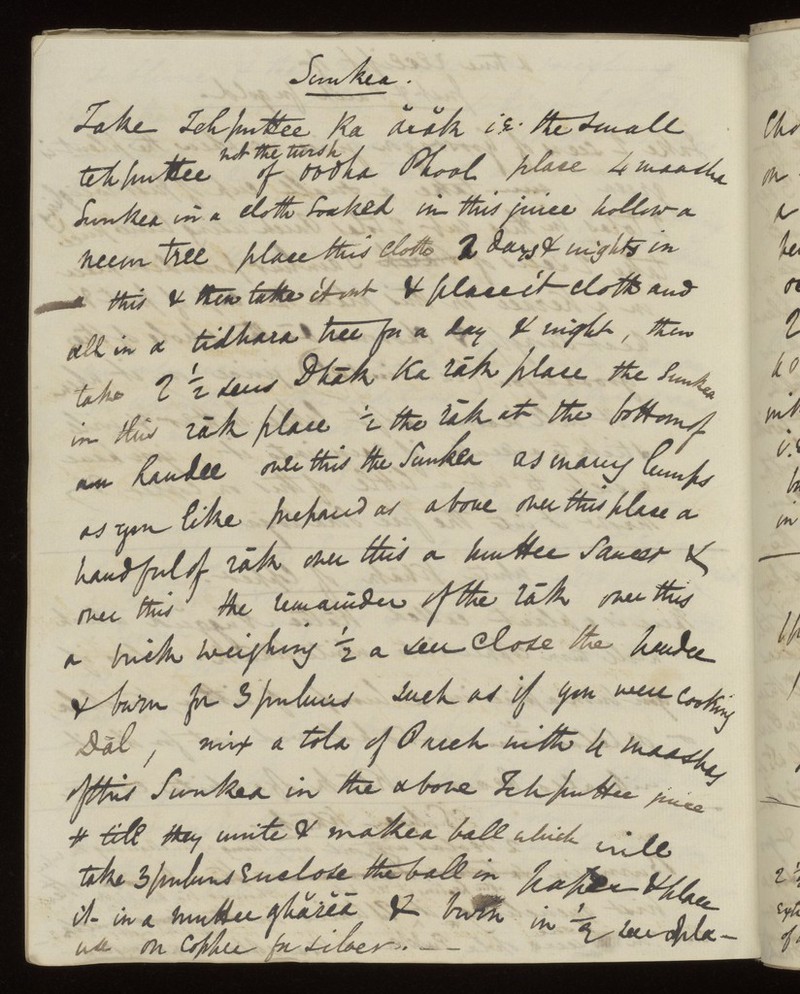 Sunkea.
Take Tehputtee Ka ărăk i.e. the small
tehputtee not the tursh of oodha Phool place 4 maasha
Sunkea in a cloth soaked in this juice hollow a
neem tree place this cloth 2 days & nights in
this & then take it out & place it cloth and
all in a tidhara tree for a day & night, then
take 2 1/2 seers Dhāk Ka rāk place the Sunkea
in this rāk place 1/2 the rāk at the bottom of
an handee over this the Sunkea as many lumps
as you like prepared as above over this place a
handful of rāk over this a muttee saucer &
over this the remainder of the rāk over this
a brick weighing 1/2 a seer close the handee
& burn for 3 puhurs such as if you were cooking
Dāl, mix a tola of with 4 maashas
of this Sunkea in the above Tehputtee juice
till they unite & make a ball which will
take 3 puhurs Enclose the ball in & place
it in a muttee ghărēā & burn in 1/2 seer
use on copper for silver. —